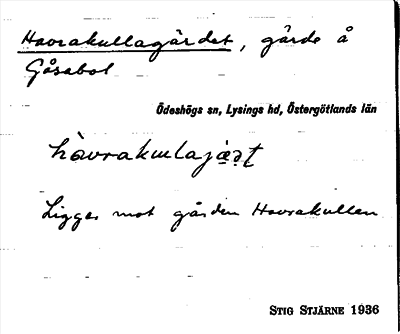 Havrakullagärdet, gärde å
Gåsabol
Ödeshögs sn, Lysings hd, Östergötlands län
Ligger mot gården Havrakullen
STIG STJÄRNE 1936